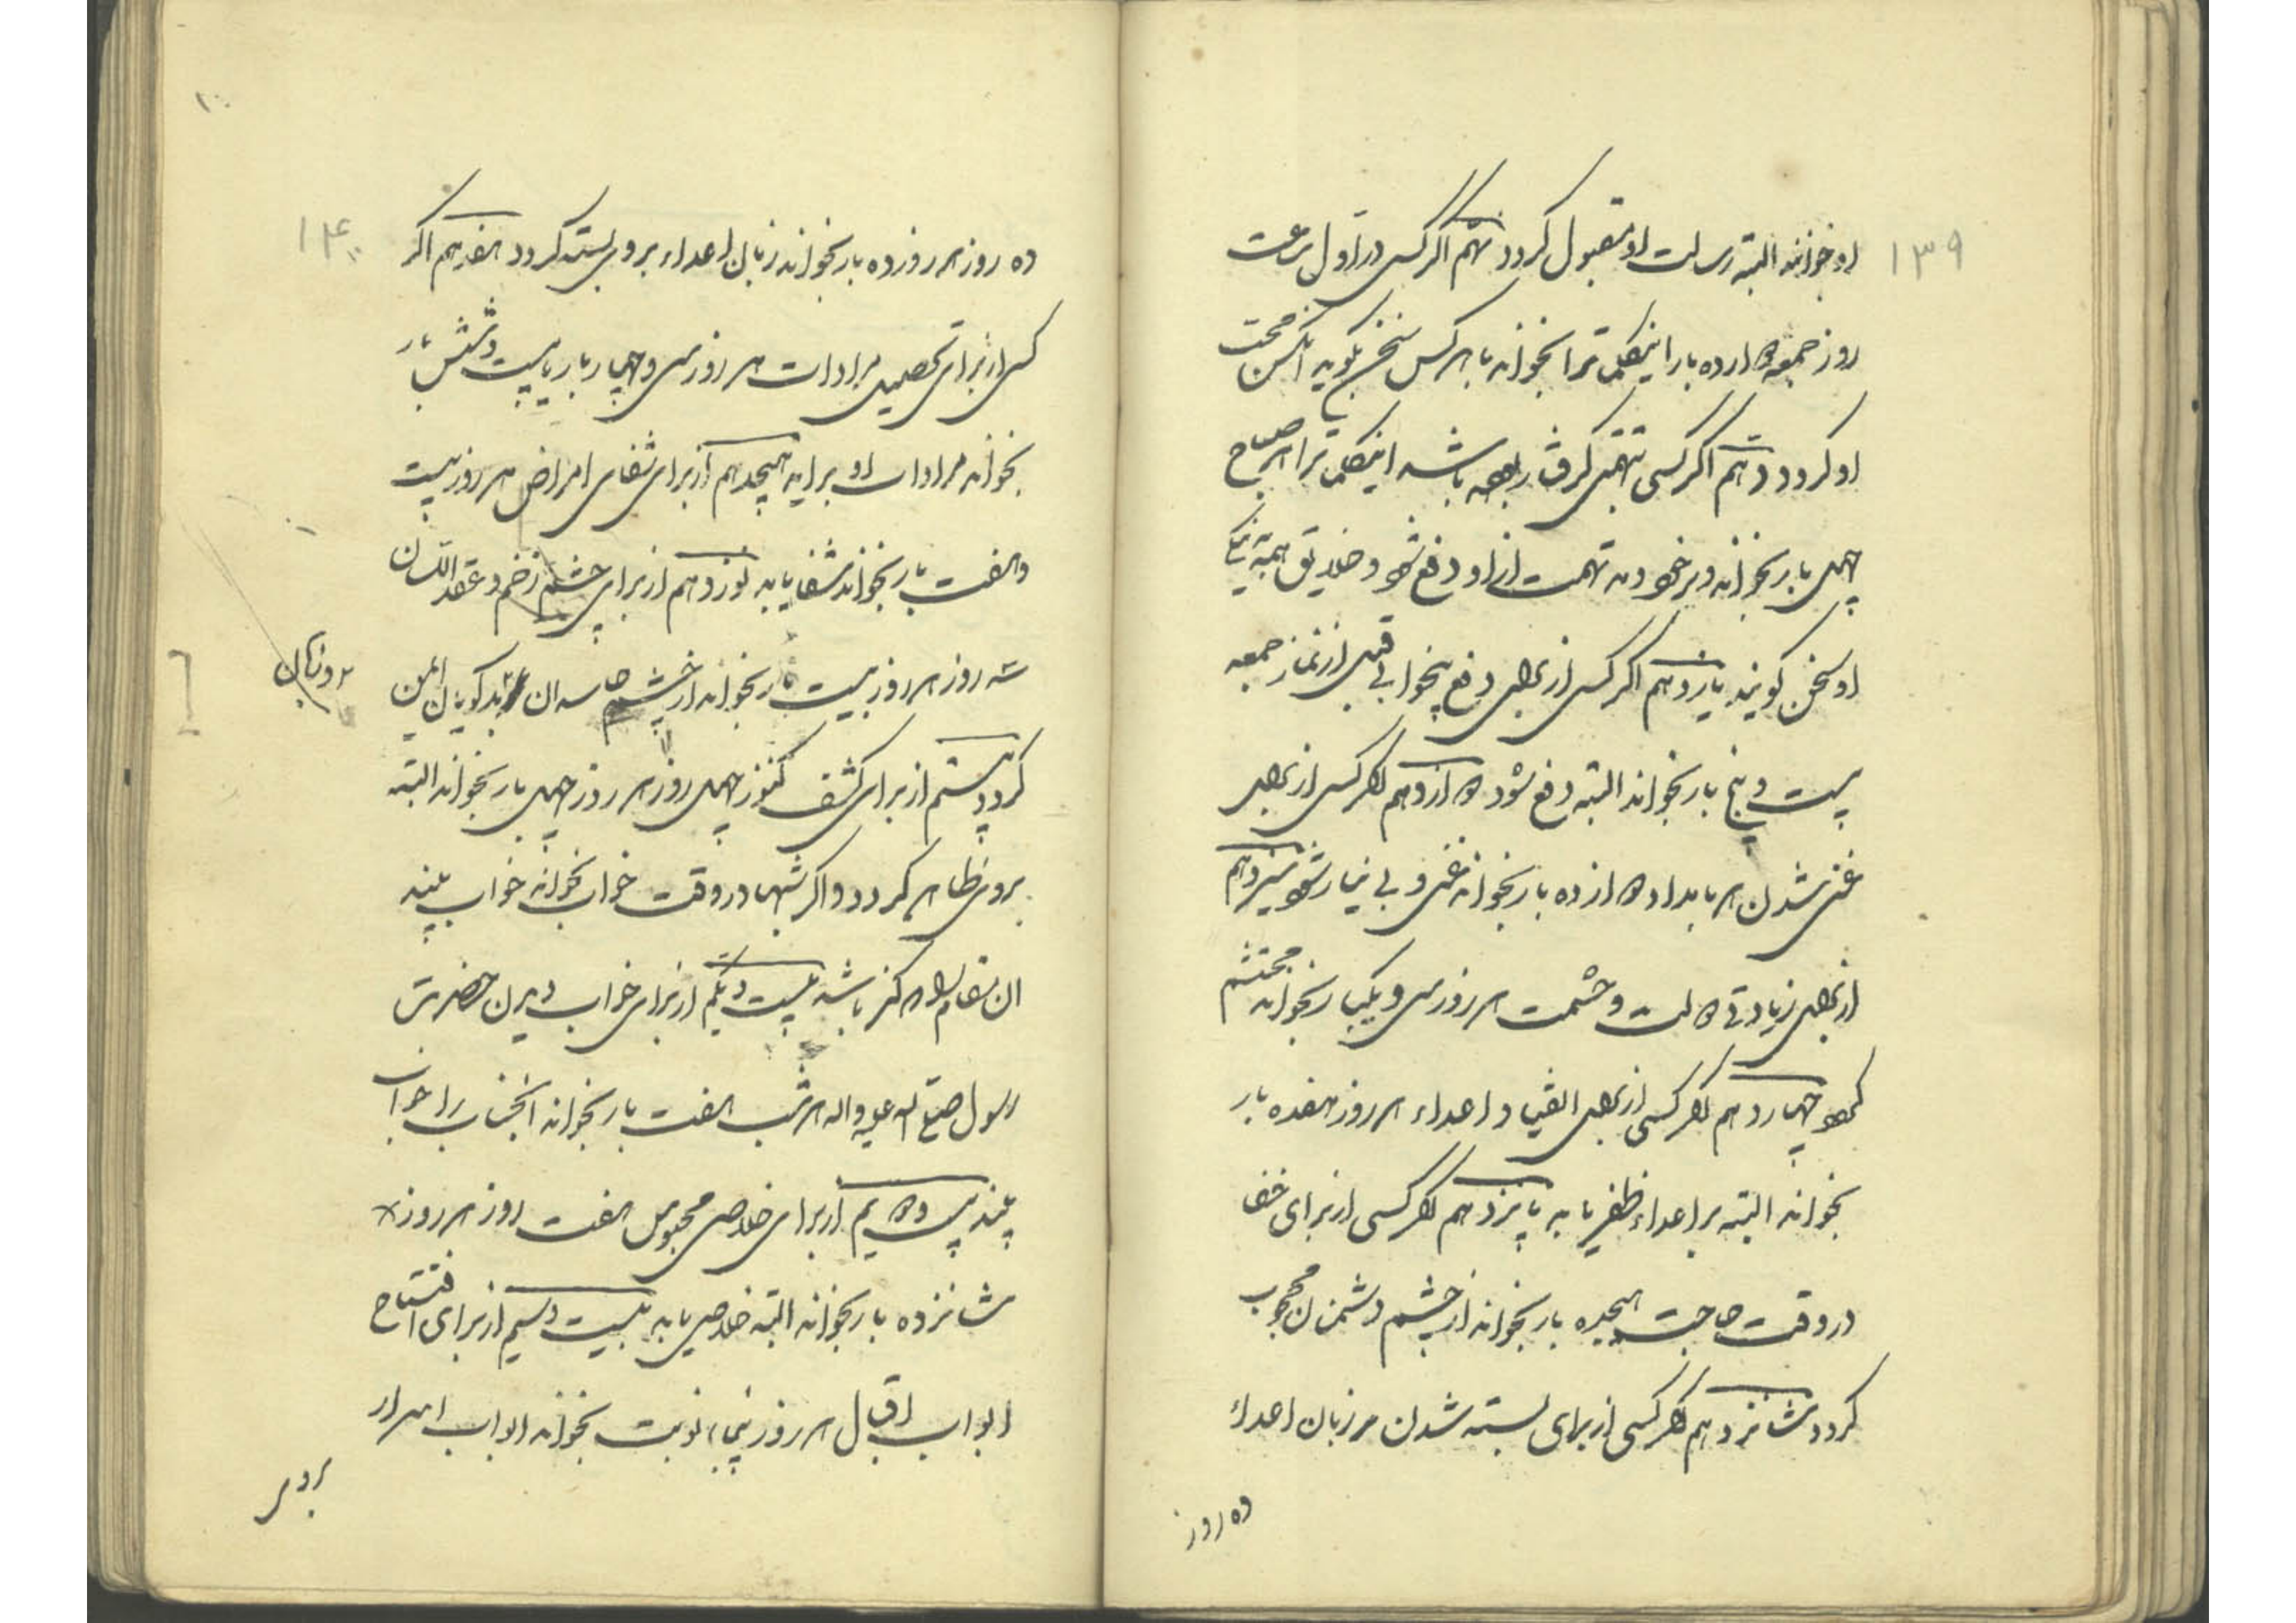 ۱۳۹
او خوانند البته رسالت او مقبول کردد نهم اکر کسی در اول ساعت
روز جمعه دوازده بار اینکلمات را بخواند با هر کس سخن بکوید آنکس محب
او کردد دهم اکر کسی بتهمتی کرفتار بوده باشد اینکلمات را هر صباح
چهل بار بخواند و بر خود دمد تهمت از او دفع شود و خلایق همه به نیکی
او سخن کویند یازدهم اکر کسی از برای دفع بیخوابی قبل از نماز جمعه
بیست و پنج بار بخواند البته دفع شود دوازدهم اکر کسی از برای
غنی شدن هر بامداد دوازده بار بخواند غنی و بی نیاز شود سیزدهم
از برای زیادتی دولت و حشمت هر روز سی و یکبار بخواند محتشم
کردد چهاردهم اکر کسی از برای القیاد اعداء هر روز هفده بار
بخواند البته بر اعداء ظفر یابد پانزدهم اکر کسی از برای خفا
در وقت حاجت هیجده بار بخواند از چشم دشمنان محجوب
کردد شانزدهم اکر کسی از برای بسته شدن مر زبان اعداء
ده روز
۱۴۰
ده روز هر روز ده بار بخواند زبان اعداء بر وی بسته کردد هفدهم اکر
کسی از برای تحصیل مرادات هر روز سی و چهار بار یا بیست و شش بار
بخواند مرادات او براید هیجدهم از برای شفای امراض هر روز بیست
و هفت بار بخواند شفا یابد نوزدهم از برای چشم زخم و عقد اللسان
سه روز هر روز بیست بار بخواند از چشم حاسدان بدکویان ایمن
کردد بیستم از برای کشف کنوز چهل روز هر روز چهل بار بخواند البته
بر وی ظاهر کردد و اکر شبها در وقت خواب بخواند خواب بیند
ان مقام که کنز باشد بیست و یکم از برای خواب دیدن حضرت
رسول صلی الله علیه واله هر شب هفت بار بخواند انجناب را خواب
بیند بیست و دویم از برای خلاصی محبوس هفت روز هر روز
شانزده بار بخواند البته خلاصی یابد بیست و سیم از برای افتتاح
ابواب اقبال هر روز پنجاه نوبت بخواند ابواب اسرار
بر وی